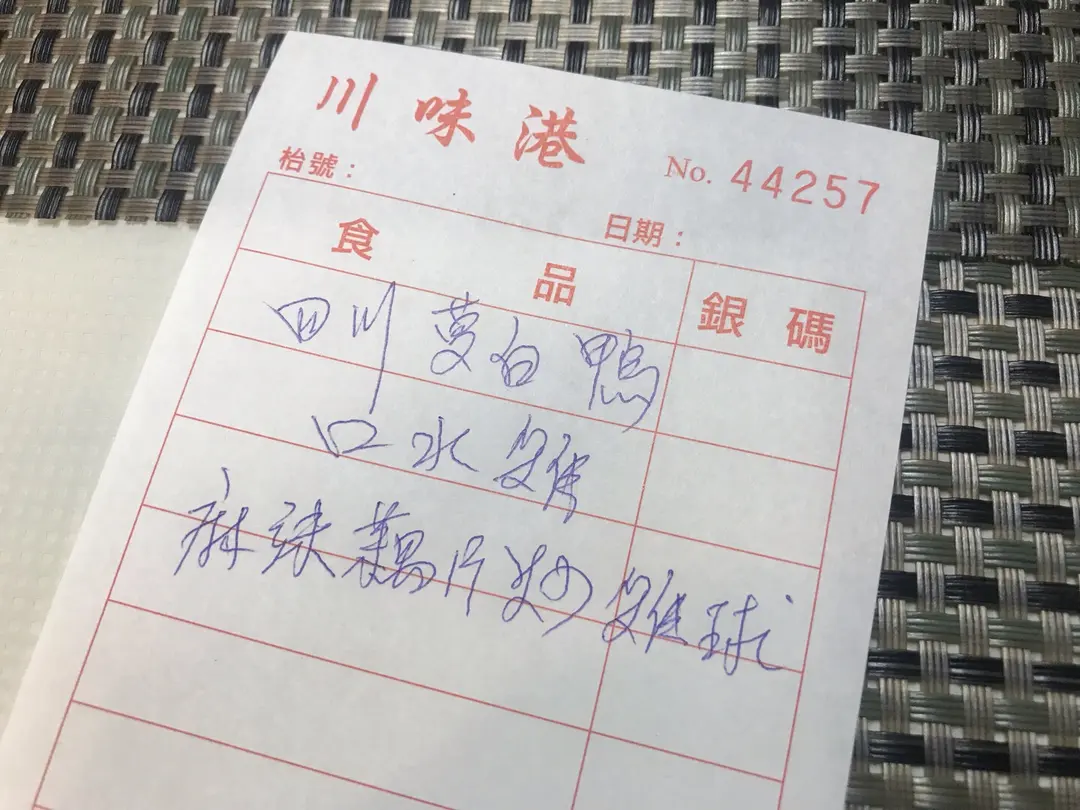 川味港
No. 44257
枱號：
日期：
食品 銀碼
四川 白鴨
口水雞
麻辣藕片炒雞球